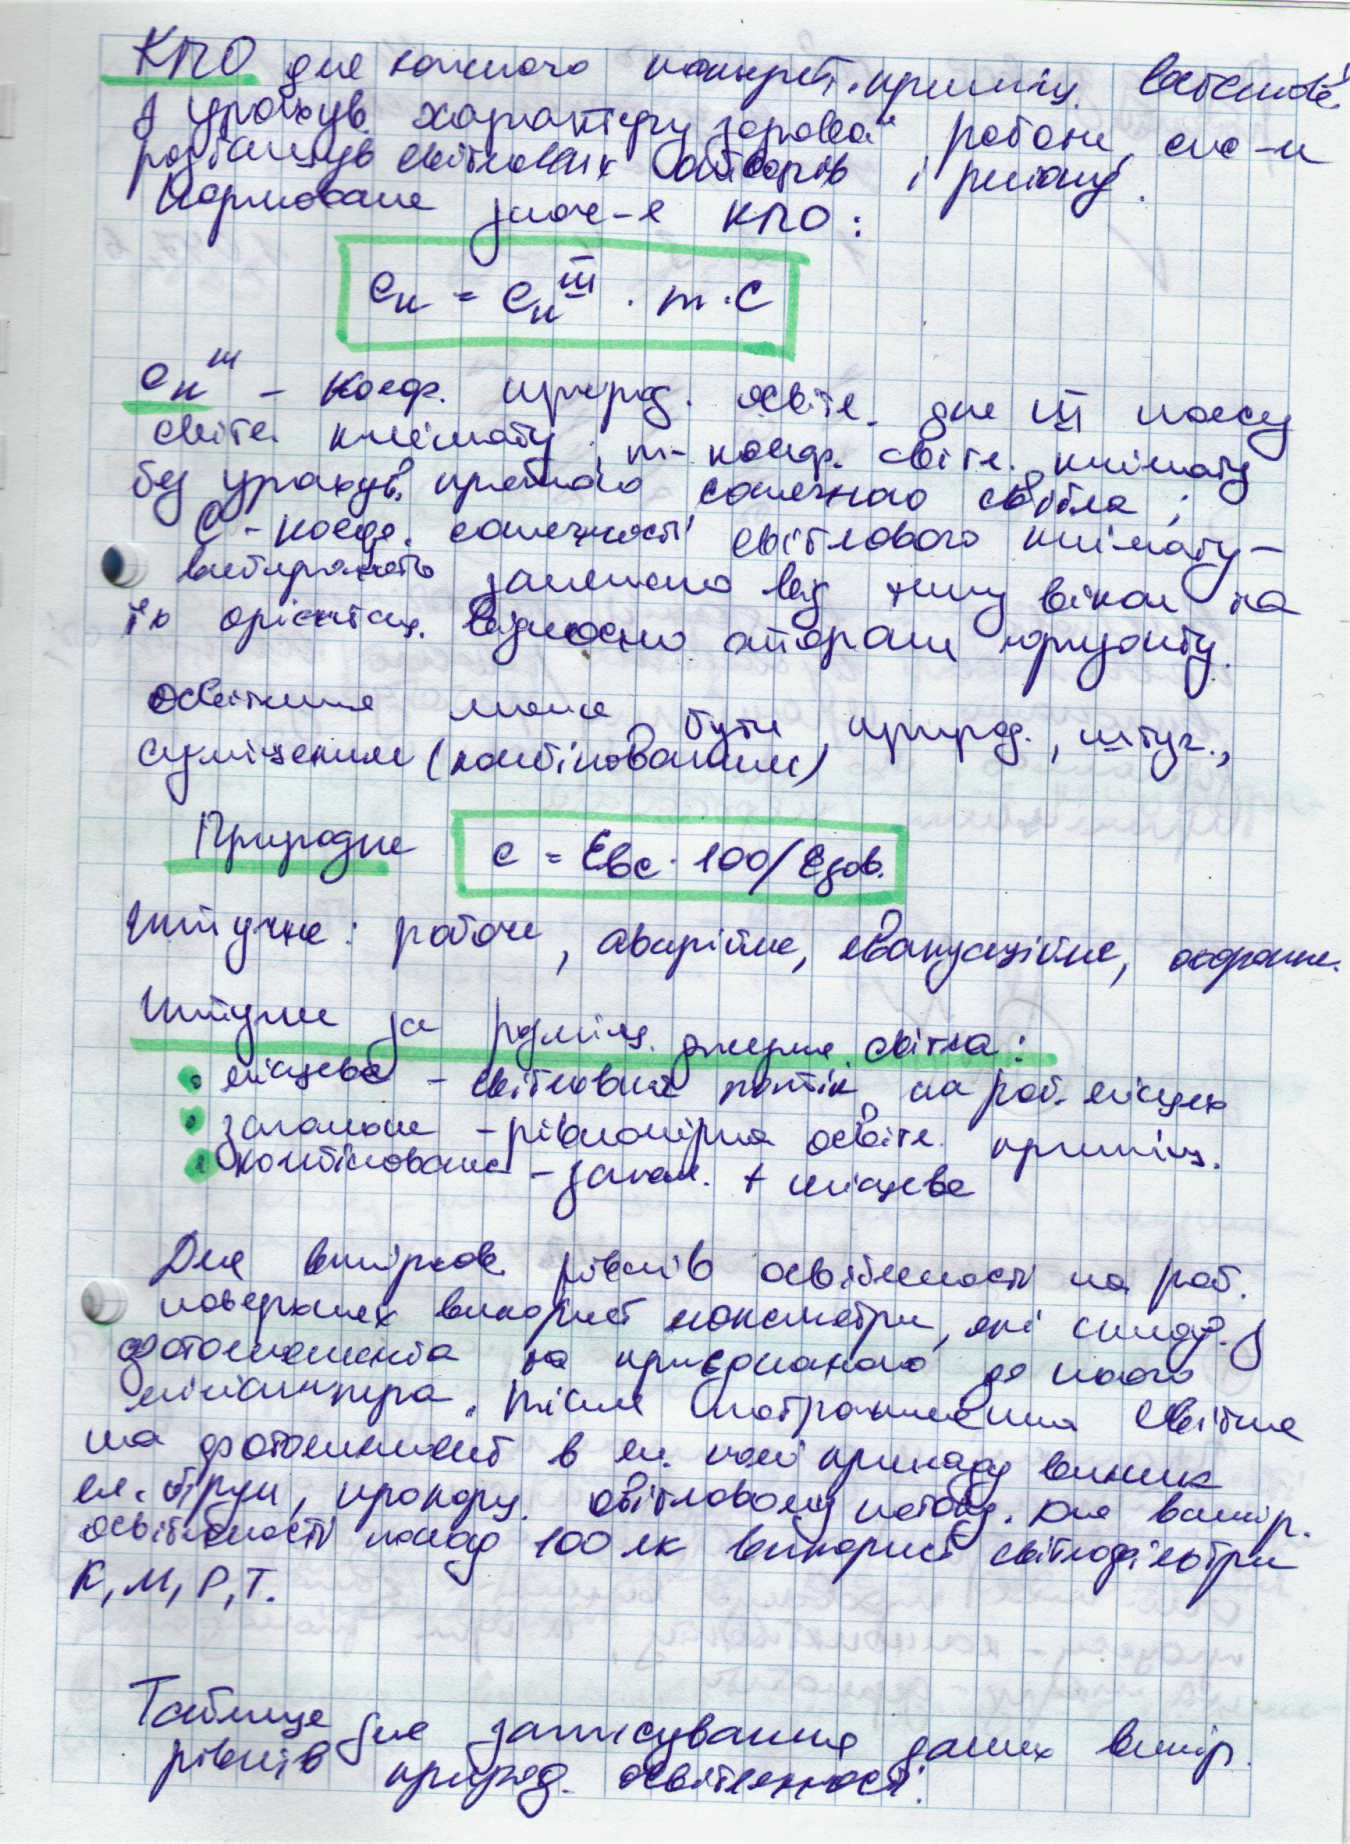 КПО для кожного конкрет. приміщ. встановл.
з урахув. характеру зорової роботи, сис-и
розташув світлових отворів і регіону.
Нормоване знач-я КПО:
eн = eнᴵᴵᴵ · m · C
eнᴵᴵᴵ – коеф. природ. освітл. для III поясу
світл. клімату; m – коеф. світл. клімату
без урахув. прямого сонячного світла;
C – коеф. сонячності світлового клімату –
вибирають залежно від типу вікон та
їх орієнтац. відносно сторони горизонту.
Освітлення може бути природ., штуч.,
суміщеним (комбінованим)
Природне e = Eвс · 100/Eзов.
Штучне: робоче, аварійне, евакуаційне, охоронне.
Штучне за розміщ. джерел світла:
місцеве – світловий потік на роб. місцях
загальне – рівномірне освітл. приміщ.
комбіноване – загал. + місцеве
Для вимірюв. рівнів освітленості на роб.
поверхнях використ люксметри, які склад. з
фотоелемента та приєднаного до нього
міліамперметра. Після потрапляння світла
на фотоелемент в ел. колі приладу виник
ел. струм, пропорц. світловому потоку. Для вимір.
освітленості понад 100 лк використ світлофільтри
К, М, Р, Т.
Таблиця для записування даних вимір.
рівнів природ. освітленності: